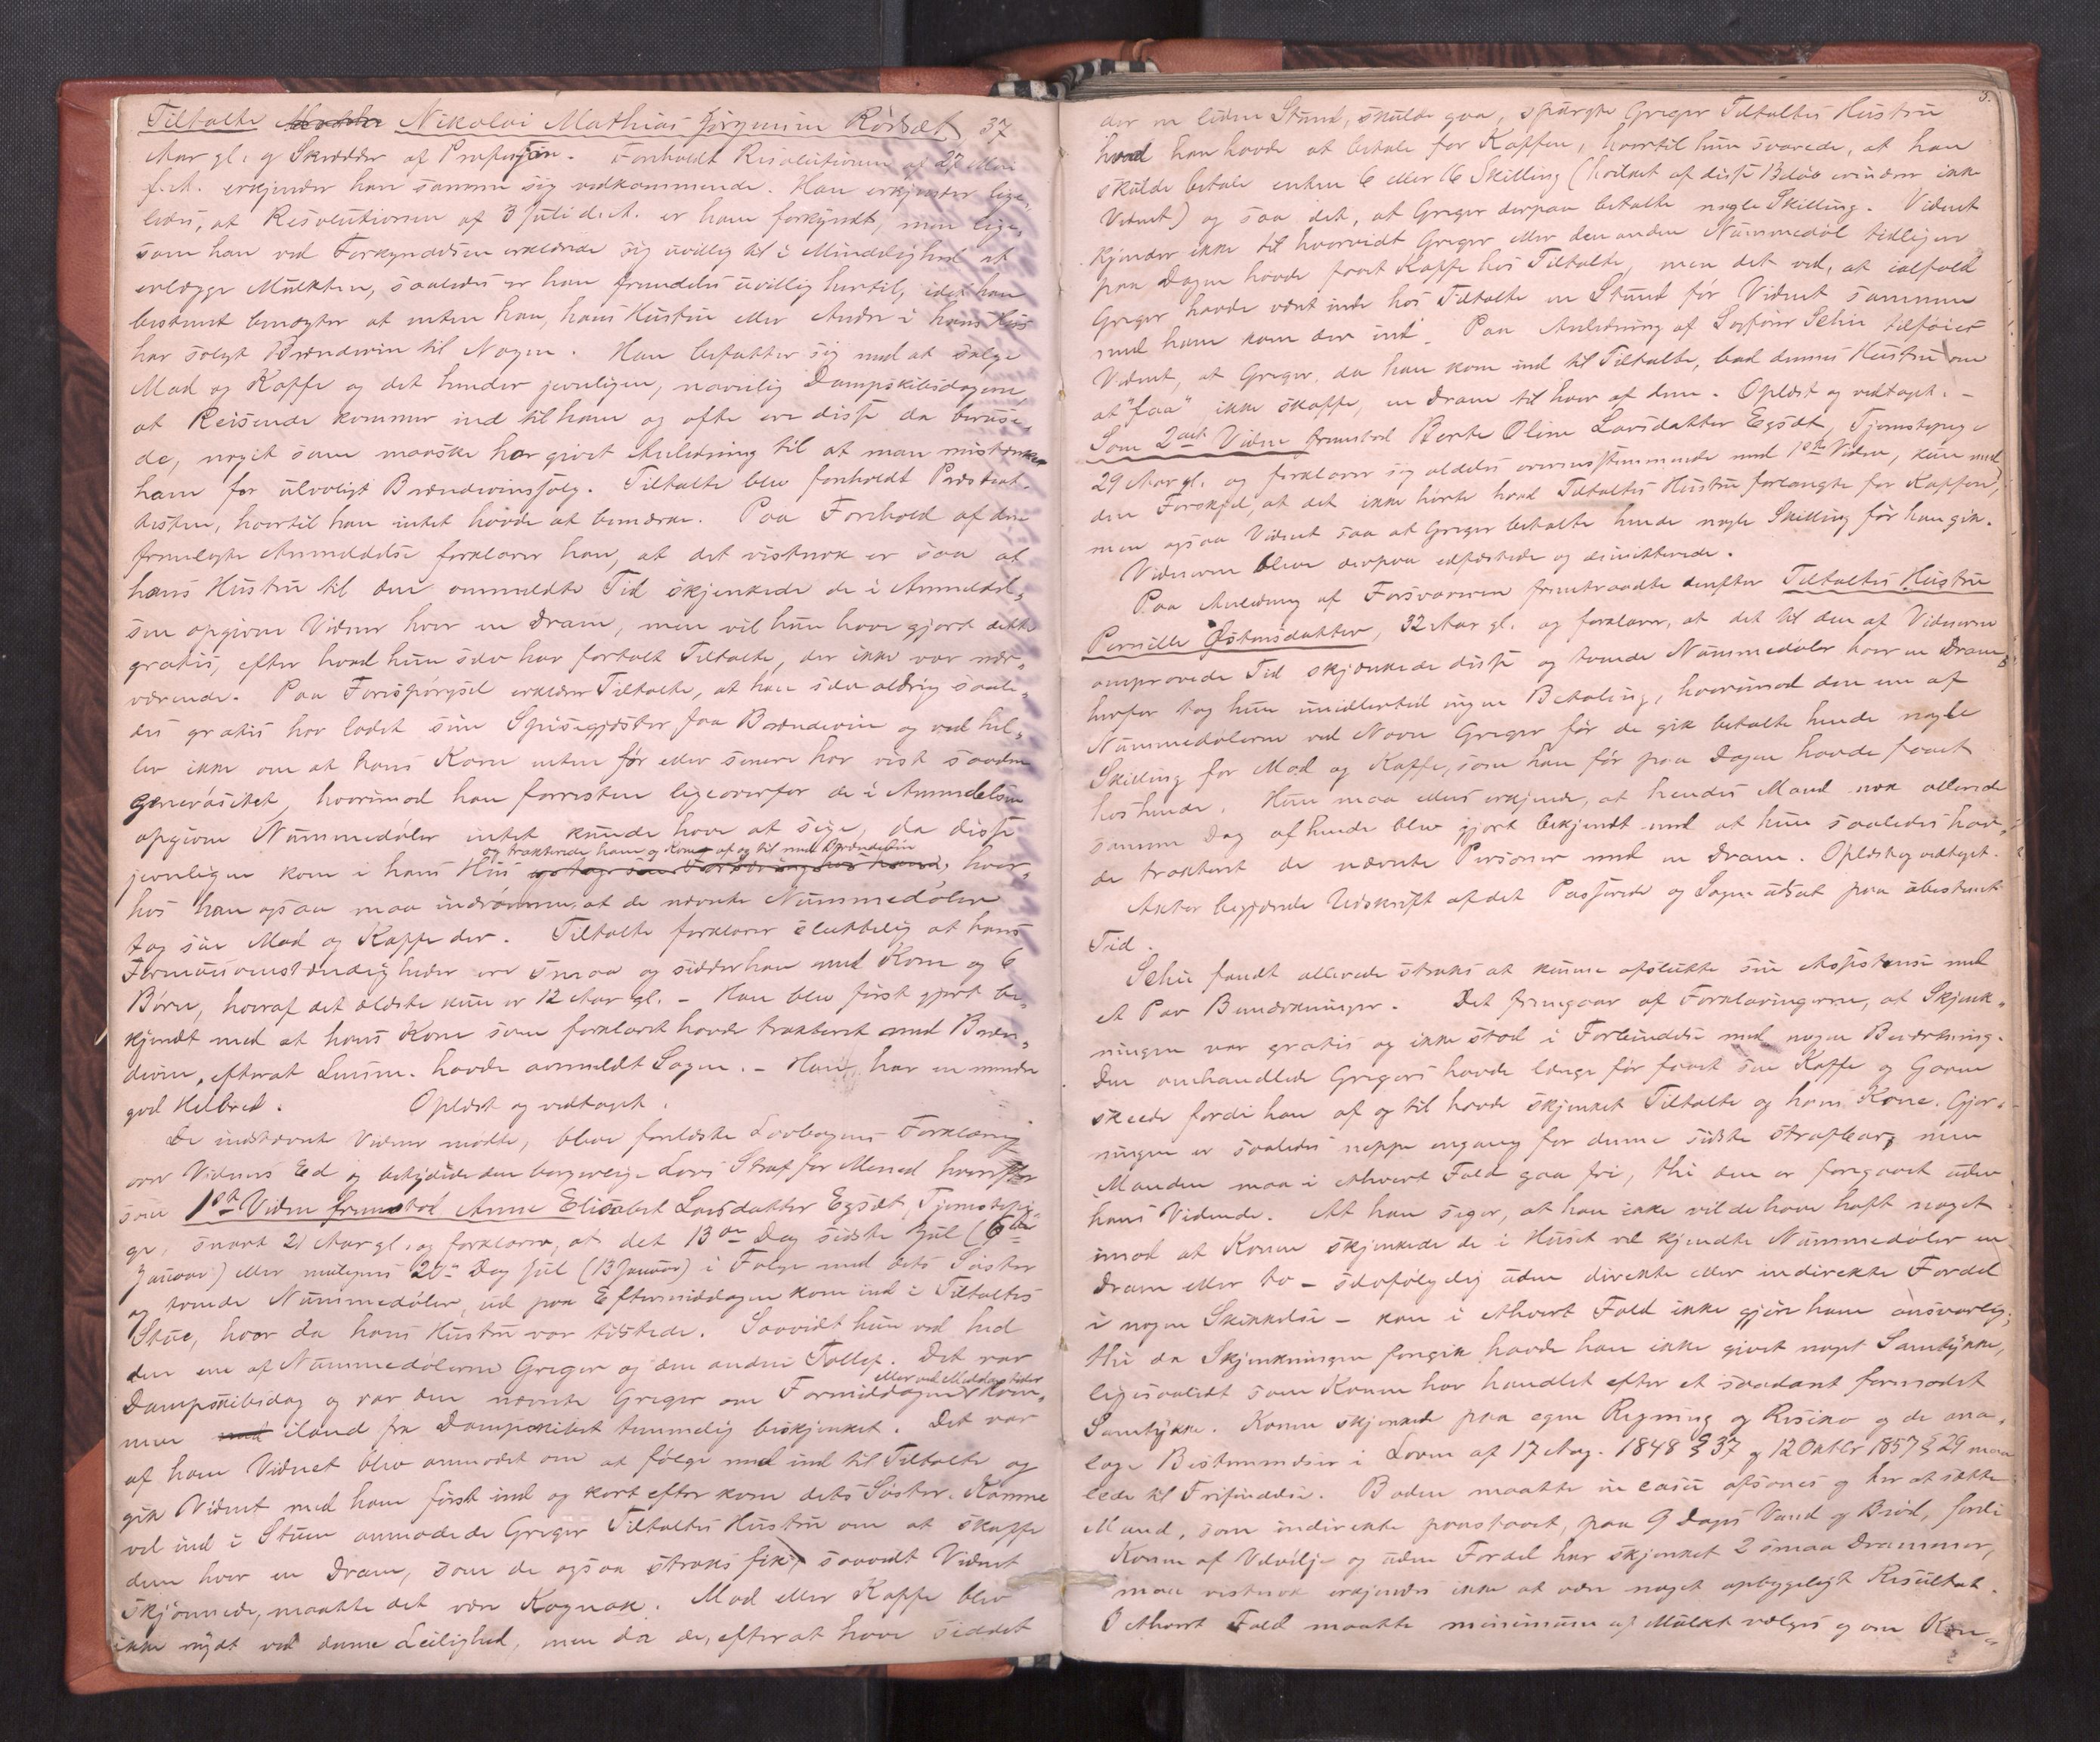 Tiltalte Nikolai Mathias Jørgensen Rørdæt 37
Aar gl. og Skrædder af Profession. Foreholdt Resolutionen af 27 Mai
f. A. erkjender han samme sig vedkommende. Han erkjender lige-
ledes, at Resolutionen af 3 Juli d. A. er ham forkyndt, men lige-
som han ved Forkyndelsen erklærede sig uvillig til i Mindelighed at
erlægge Mulkten, saaledes er han fremdeles uvillig hertil, idet han
bestemt benægter at enten han, hans Hustru eller Andre i hans Hus
har solgt Brændevin til Nogen. Han befatter sig med at sælge
Mad og Kaffe og det hænder jevnligen, navnlig Dampskibsdagene
at Reisende kommer ind til ham og ofte ere disse da beruse-
de, noget som maaske har givet Anledning til at man mistænker
ham for ulovligt Brændevinssalg. Tiltalte blev foreholdt Præsteat-
testen, hvortil han intet havde at bemærke. Paa Forehold af den
fremlagte Anmeldelse forklarer han, at det vistnok er saa at
hans Hustru til den anmeldte Tid skjenkede de i Anmeldel-
sen opgivne Vidner hver en Dram, men vil hun have gjort dette
gratis, efter hvad hun selv har fortalt Tiltalte, der ikke var nær-
værende. Paa Forespørgsel erklærer Tiltalte, at han selv aldrig saale-
des gratis har ladet sine Spisegjæster faa Brændevin og ved hel-
ler ikke om at hans Kone enten før eller senere har vist saadan
generøsitet, hvorimod han forresten ligeoverfor de i Anmeldelsen
opgivne Nummedøler intet kunde have at sige, da disse
og trakterede ham og Kone af og til med Brændevin
jevnligen kom i hans Hus og tog sin Fortæring hos ham, hvor-
hos han ogsaa maa indrømme, at de nævnte Nummedøler
tog sin Mad og Kaffe der. Tiltalte forklarer sluttelig at hans
Formuesomstændigheder ere smaa og sidder han med Kone og 6
Børn, hvoraf det ældste kun er 12 Aar gl. - Han blev først gjort be-
kjendt med at hans Kone som forklaret havde trakteret med Bræn-
devin, efterat Lensm. havde anmeldt Sagen. - Han har en mindre
god Helbred. Oplæst og vedtaget.
De indstævnte Vidner mødte, bleve forelæste Lovbogens Forklaring
over Vidners Ed og betydede den borgerlige Lovs Straf for Mened hvorefter
som 1ste Vidne fremstod Anne Elisabet Larsdatter Egsæt, Tjenestepi-
ge, snart 21 Aar gl. og forklarer, at det 13de Dag sidste Jul (6te
Januar) eller muligens 20de Dag Jul (13 Januar) i Følge med dets Søster
og tvende Nummedøler, ud paa Eftermiddagen kom ind i Tiltaltes
Stue, hvor da hans Hustru var tilstede. Saavidt hun ved hed
den ene af Nummedølerne Greger og den anden Tollef. Det var
eller ved Middagstider
Dampskibsdag og var den nævnte Greger om Formiddagen kom-
men iland fra Dampskibet temmelig beskjenket. Det var
af ham Vidnet blev anmodet om at følge med ind til Tiltalte og
gik Vidnet med ham først ind og kort efter kom dets Søster. Komne
vel ind i Stuen anmodede Greger Tiltaltes Hustru om at skaffe
dem hver en Dram, som de ogsaa straks fik, saavidt Vidnet
skjønnede, maatte det være Kognak. Mad eller Kaffe blev
ikke nydt ved denne Leilighed, men da de, efterat have siddet
5.
der en liden Stund, skulde gaa, spurgte Greger Tiltaltes Hustru
hvad han havde at betale for Kaffen, hvortil hun svarede, at han
skulde betale enten 6 eller 16 Skilling (hvilket af disse Beløb erindrer ikke
Vidnet) og saa det, at Greger derpaa betalte nogle Skilling. Vidnet
kjender ikke til hvorvidt Greger eller den anden Nummedøl tidligere
paa Dagen havde faaet Kaffe hos Tiltalte, men det ved, at ialfald
Greger havde været inde hos Tiltalte en Stund før Vidnet sammen
med ham kom der ind. Paa Anledning af Sagfører Sehu tilføies
Vidnet, at Greger, da han kom ind til Tiltalte, bad dennes Hustru om
at "faa" ikke skaffe, en Dram til hver af dem. Oplæst og vedtaget. -
Som 2det Vidne fremstod Berte Oline Larsdatter Egsæt, Tjenestepige
29 Aar gl. og forklarer sig aldeles overensstemmende med 1ste Vidne, kun med
den Forskjel, at det ikke hørte hvad Tiltaltes Hustru forlangte for Kaffen,
men ogsaa Vidnet saa at Greger betalte hende nogle Skilling før han gik.
Vidnerne bleve derpaa edfæstede og dimitterede.
Paa Anledning af Forsvareren fremtraadte derefter Tiltaltes Hustru
Pernille Østensdatter, 32 Aar gl. og forklarer, at det til den af Vidnerne
omprovede Tid skjænkede disse og tvende Nummedøler hver en Dram,
herfor tog hun imidlertid ingen Betaling, hvorimod den ene af
Nummedølerne ved Navn Greger før de gik betalte hende nogle
Skilling for Mad og Kaffe, som han før paa Dagen havde faaet
hos hende. Hun maa ellers erkjende, at hendes Mand nok allerede
samme Dag af hende blev gjort bekjendt med at hun saaledes hav-
de trakteret de nævnte Personer med en Dram. Oplæst og vedtaget.
Aktor begjærede Udskrift af det Passerede og Sagen udsat paa ubestemt
Tid.
Sehu fandt allerede straks at kunne afslutte sin Assistense med
et Par Bemærkninger. Det fremgaar af Forklaringerne, at Skjenk-
ningen var gratis og ikke stod i Forbindelse med nogen Bevertning.
Den omhandlede Gregers havde længe før faaet sin Kaffe og Gaven
skeede fordi han af og til havde skjenket Tiltalte og hans Kone. Gjer-
ningen er saaledes neppe engang for denne sidste strafbar, men
Manden maa i ethvert Fald gaa fri, thi den er foregaaet uden
hans Vidende. At han siger, at han ikke vilde have haft noget
imod at Konen skjenkede de i Huset vel kjendte Nummedøler en
Dram eller to - selvfølgelig uden direkte eller indirekte Fordel
i nogen Skikkelse - kan i ethvert Fald ikke gjøre ham ansvarlig;
thi da Skjenkningen foregik havde han ikke givet noget Samtykke,
ligesaalidt som Konen har handlet efter et saadant formodet
Samtykke. Konen skjenkede paa egen Regning og Risiko og de ana-
loge Bestemmelser i Loven af 17 Aug. 1848 § 37 og 12 Oktbr 1857 § 29 maa
lede til Frifindelse. Boden maatte in casu afsones og her at sætte
Mand, som indirekte paastaaet, paa 9 Dages Vand og Brød, fordi
Konen af Velvilje og uden Fordel har skjenket 2 smaa Drammer,
maa vistnok erkjendes ikke at være noget opbyggeligt Resultat.
I ethvert Fald maatte minimum af Mulkt vælges og om Kon-